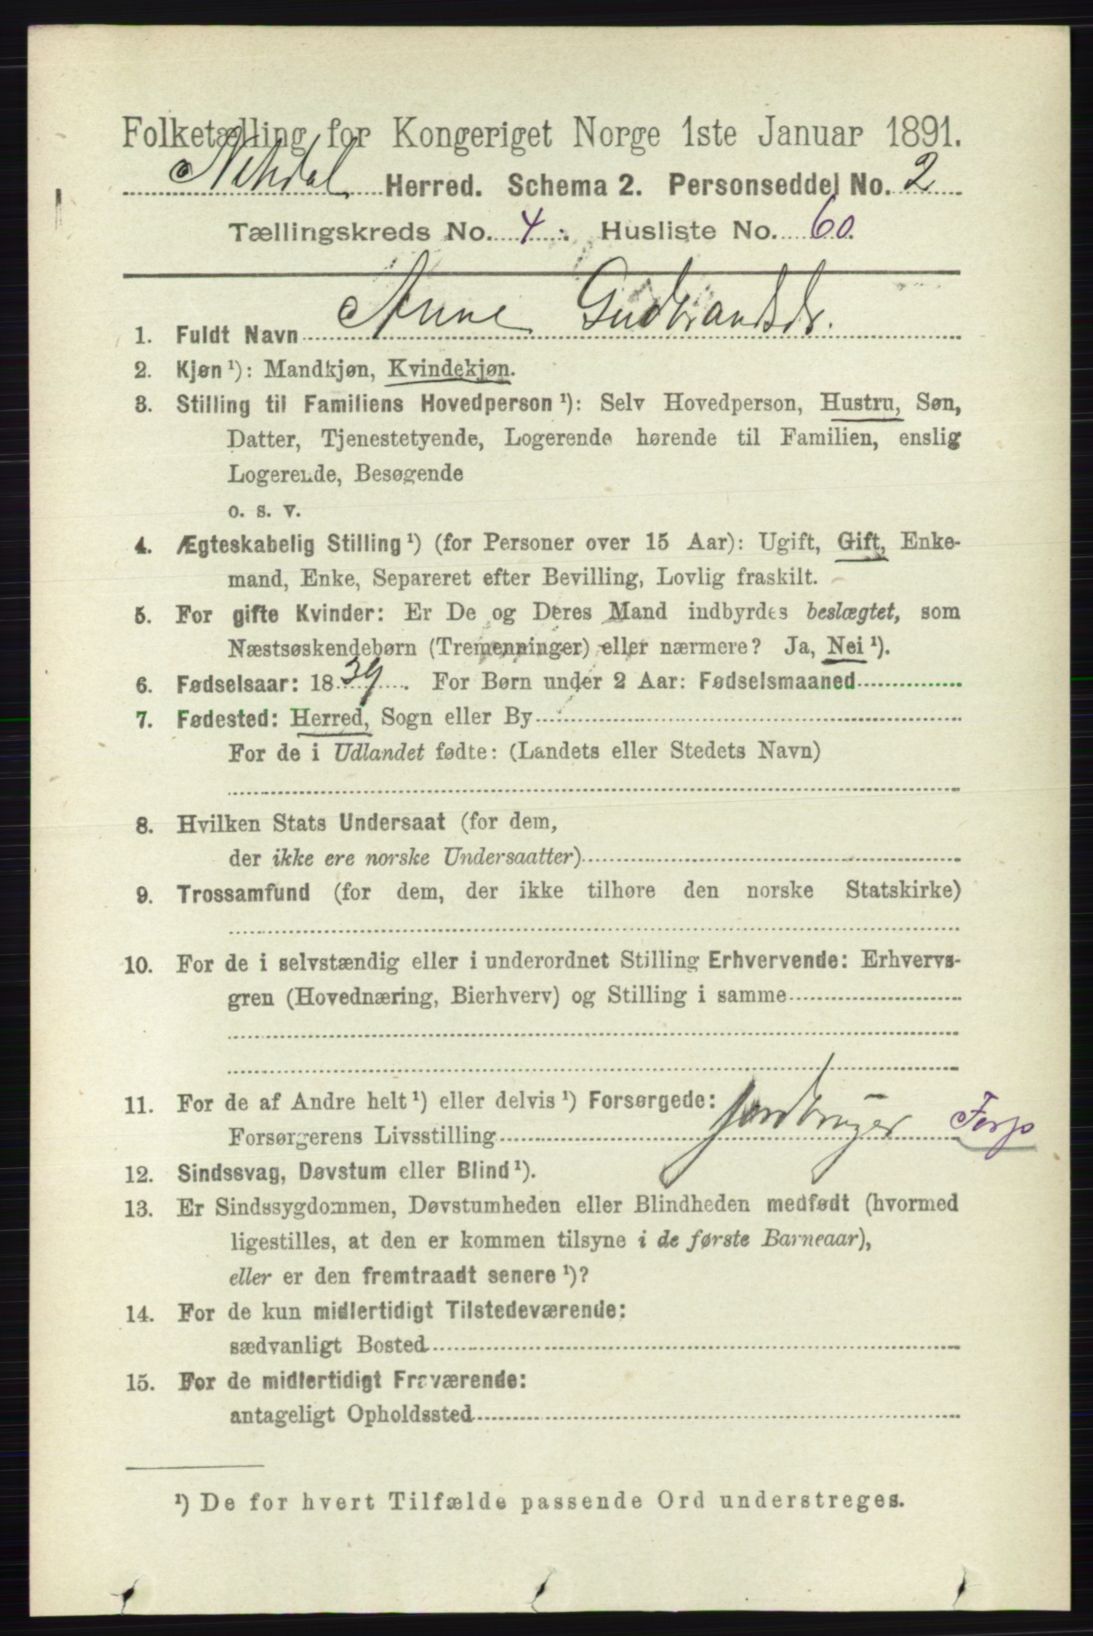 Folketælling for Kongeriget Norge 1ste Januar 1891.
Nitedal Herred. Schema 2. Personseddel No. 2
Tællingskreds No. 4. Husliste No. 60.
1. Fuldt Navn Anne Gudbrandsdr.
2. Kjøn ¹): Mandkjøn, Kvindekjøn.
3. Stilling til Familiens Hovedperson ¹): Selv Hovedperson, Hustru, Søn,
Datter, Tjenestetyende, Logerende hørende til Familien, enslig
Logerende, Besøgende
o. s. v.
4. Ægteskabelig Stilling ¹) (for Personer over 15 Aar): Ugift, Gift, Enke-
mand, Enke, Separeret efter Bevilling, Lovlig fraskilt.
5. For gifte Kvinder: Er De og Deres Mand indbyrdes beslægtet, som
Næstsøskendebørn (Tremenninger) eller nærmere? Ja, Nei ¹).
6. Fødselsaar: 1839. For Børn under 2 Aar: Fødselsmaaned
7. Fødested: Herred, Sogn eller By
For de i Udlandet fødte: (Landets eller Stedets Navn)
8. Hvilken Stats Undersaat (for dem,
der ikke ere norske Undersaatter)
9. Trossamfund (for dem, der ikke tilhøre den norske Statskirke)
10. For de i selvstændig eller i underordnet Stilling Erhvervende: Erhvervs-
gren (Hovednæring, Bierhverv) og Stilling i samme
11. For de af Andre helt ¹) eller delvis ¹) Forsørgede:
Forsørgerens Livsstilling Jordbruger Forp
12. Sindssvag, Døvstum eller Blind ¹).
13. Er Sindssygdommen, Døvstumheden eller Blindheden medfødt (hvormed
ligestilles, at den er kommen tilsyne i de første Barneaar),
eller er den fremtraadt senere ¹)?
14. For de kun midlertidigt Tilstedeværende:
sædvanligt Bosted
15. For de midlertidigt Fraværende:
antageligt Opholdssted
¹) De for hvert Tilfælde passende Ord understreges.